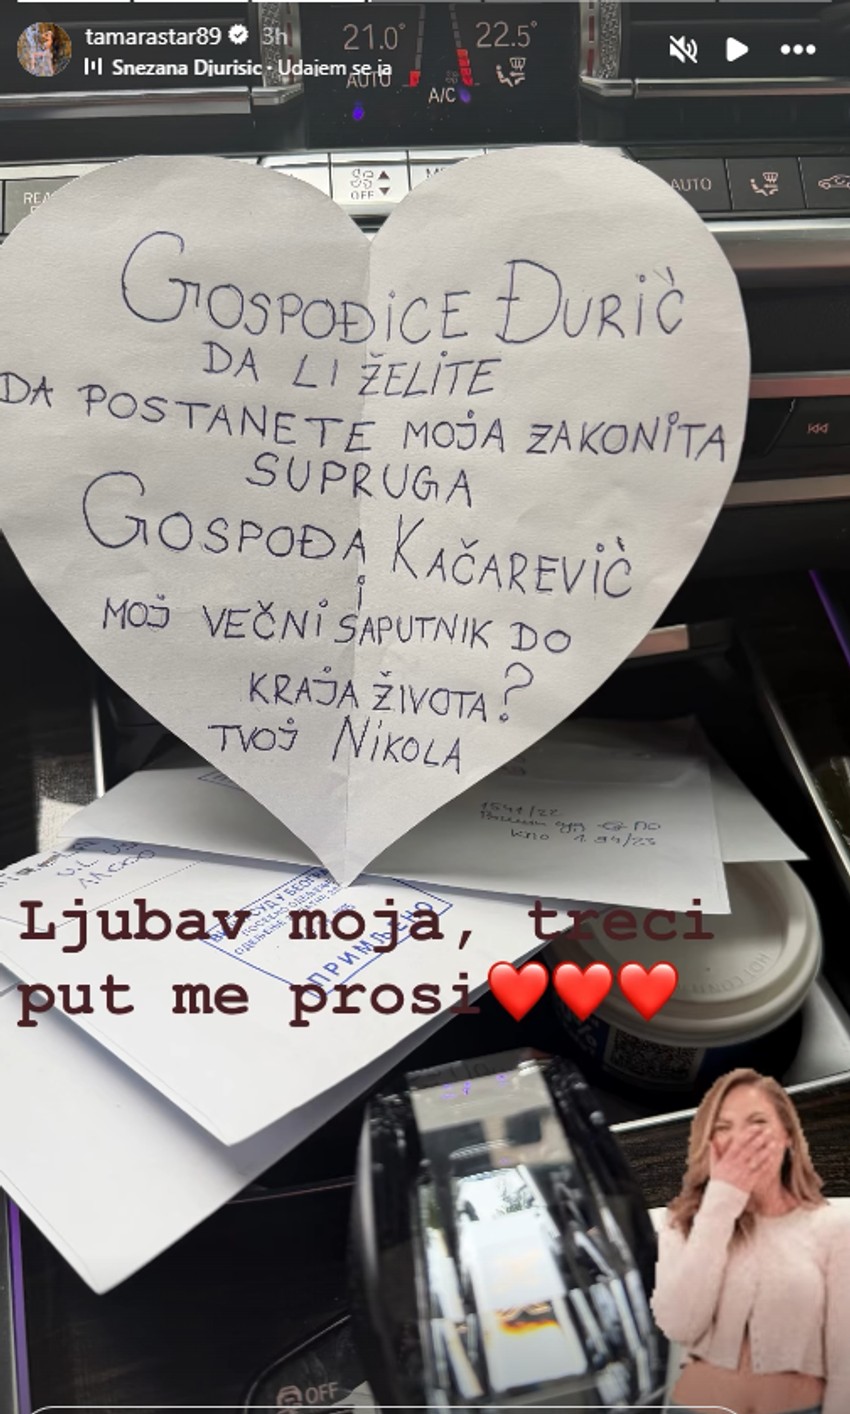 tamarastar89 3h
Snezana Djurisic · Udajem se ja
21.0° 22.5°
AUTO
A/C
OFF
AUTO
GOSPOĐICE ĐURIČ
DA LI ŽELITE
DA POSTANETE MOJA ZAKONITA
SUPRUGA
GOSPOĐA KAČAREVIČ
i
MOJ VEČNI SAPUTNIK DO
KRAJA ŽIVOTA?
TVOJ NIKOLA
1541/22
ПРИМЉЕНО
Ljubav moja, treci
put me prosi❤️❤️❤️
OFF